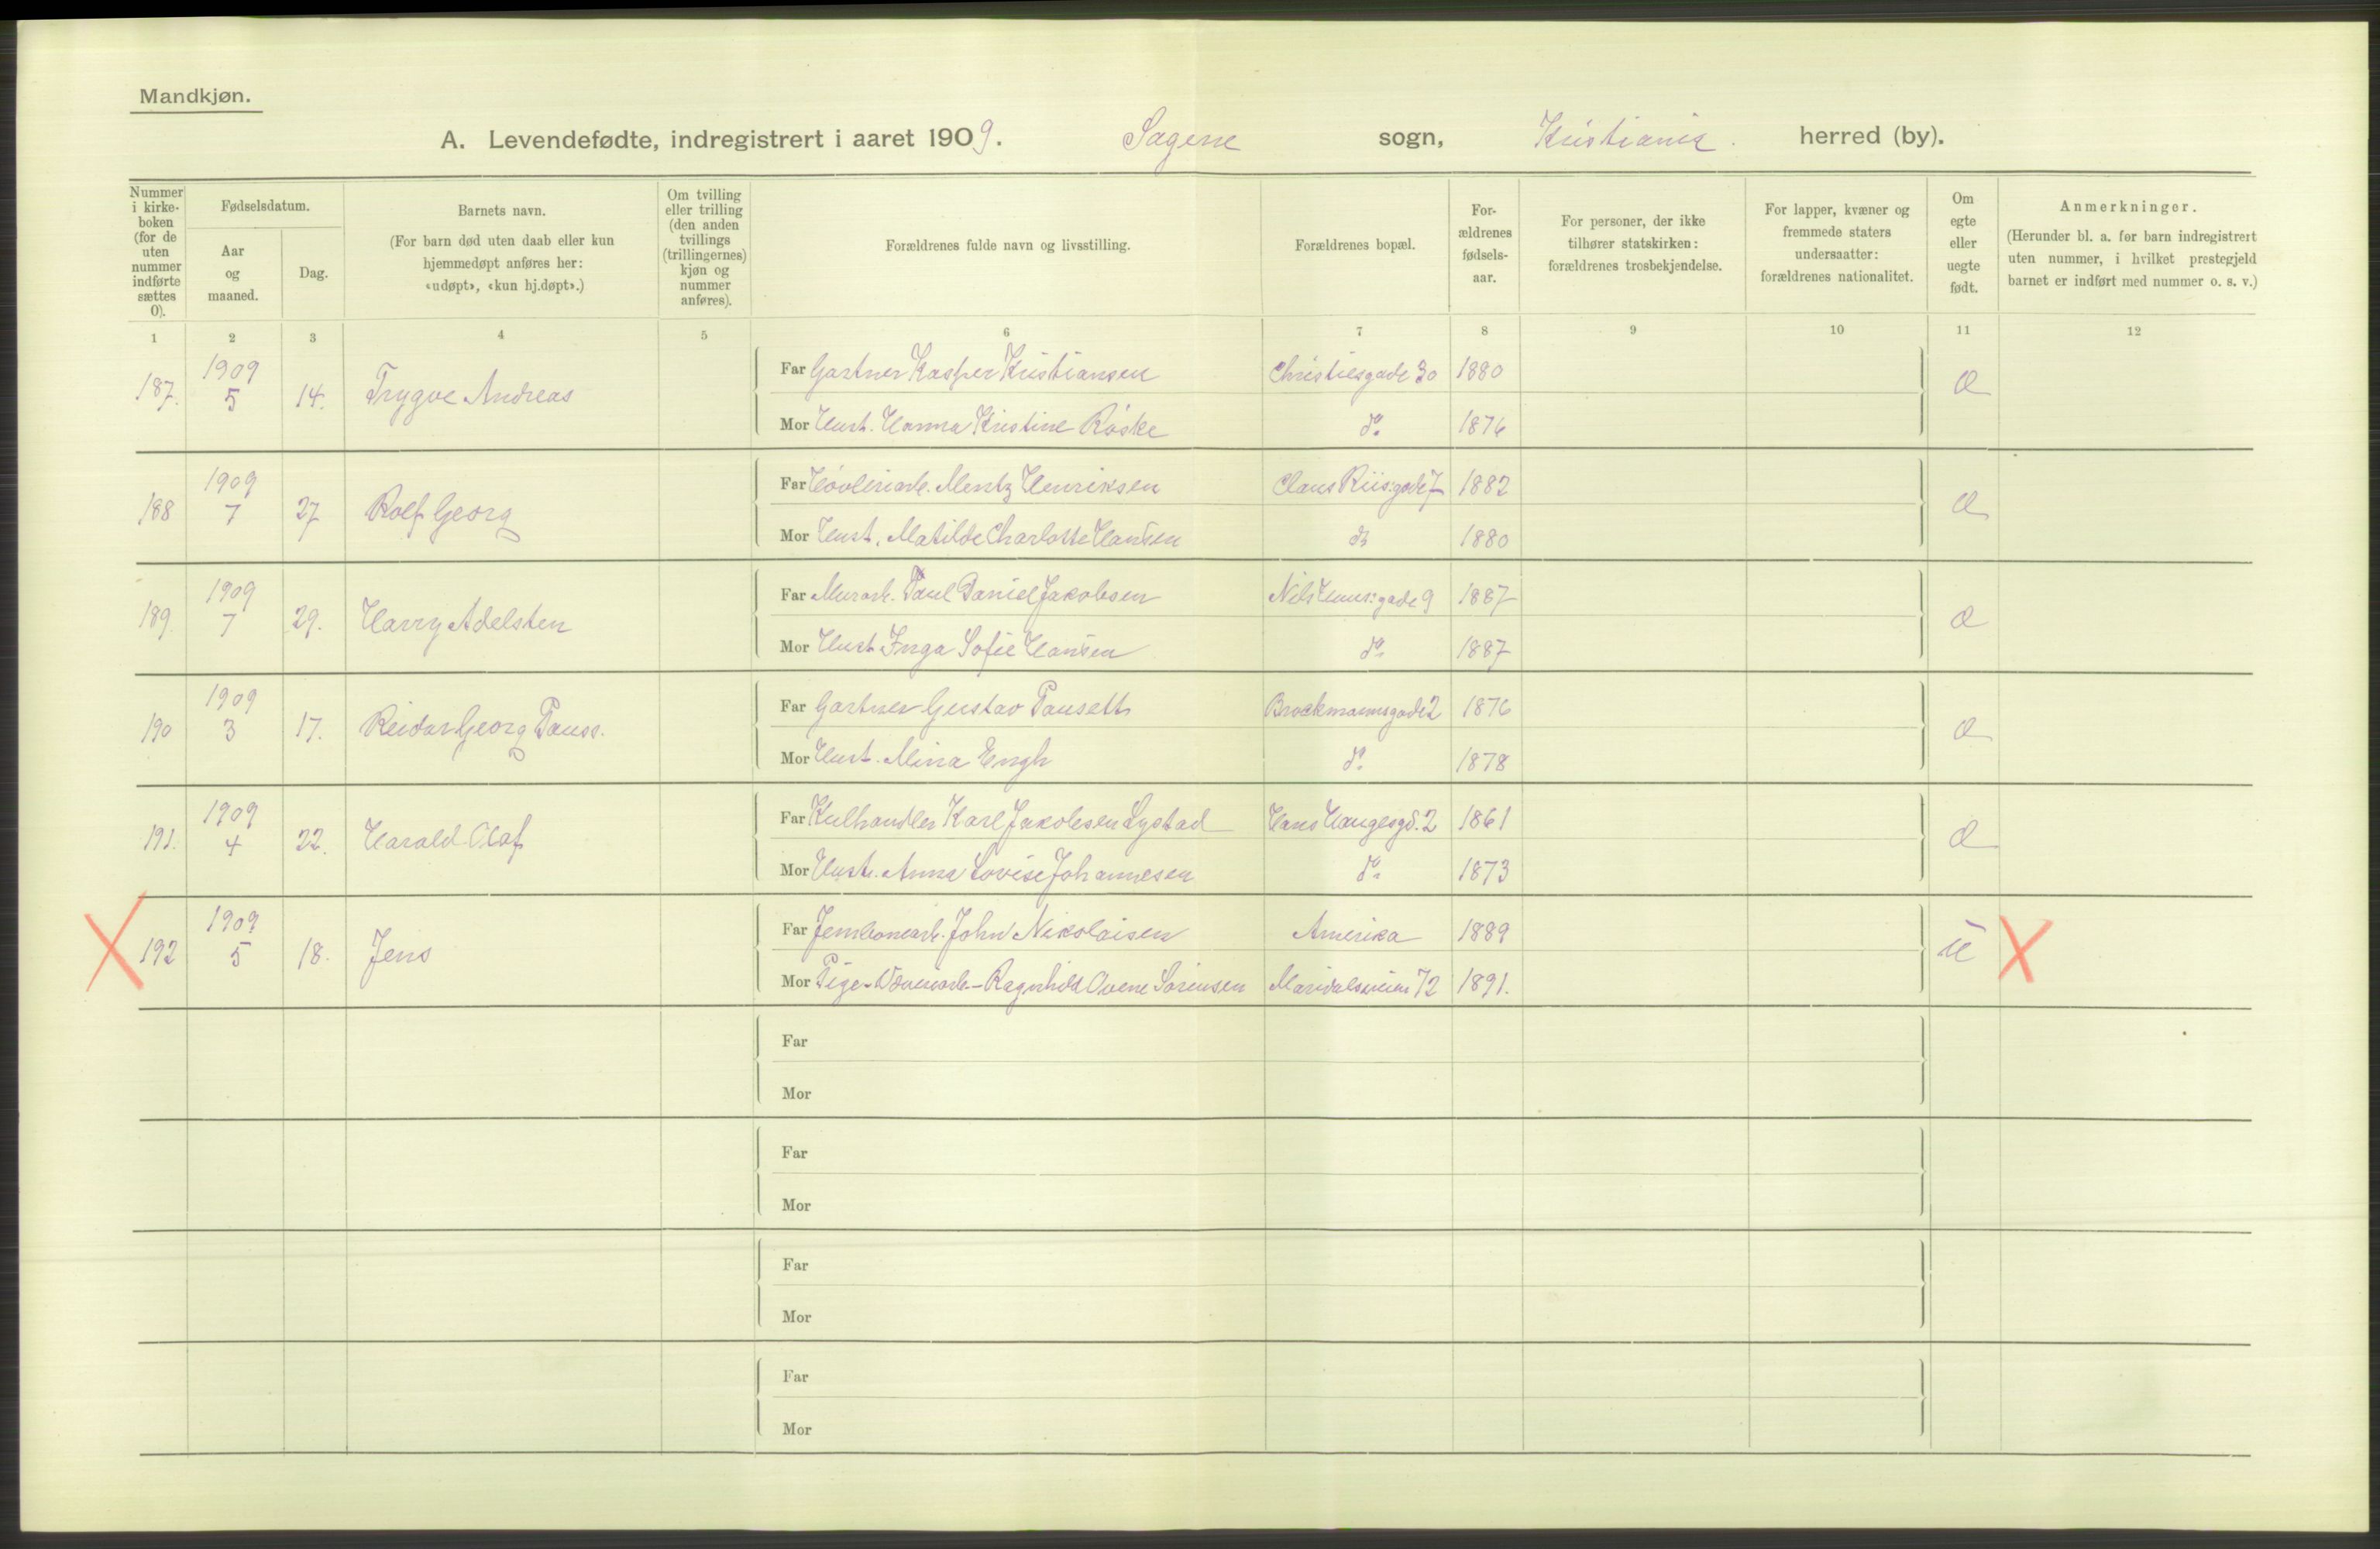 Mandkjøn.
A. Levendefødte, indregistrert i aaret 1909. Sagene sogn, Kristiania. herred (by).
Nummer i kirke-boken (for de uten nummer indførte sættes 0).
Fødselsdatum.
Aar og maaned.
Dag.
Barnets navn.
(For barn død uten daab eller kun hjemmedøpt anføres her: «udøpt», «kun hj.døpt».)
Om tvilling eller trilling (den anden tvillings (trillingernes) kjøn og nummer anføres).
Forældrenes fulde navn og livsstilling.
Forældrenes bopæl.
For-ældrenes fødsels-aar.
For personer, der ikke tilhører statskirken: forældrenes trosbekjendelse.
For lapper, kvæner og fremmede staters undersaatter: forældrenes nationalitet.
Om egte eller uegte født.
Anmerkninger.
(Herunder bl. a. for barn indregistrert uten nummer, i hvilket prestegjeld barnet er indført med nummer o. s. v.)
1 2 3 4 5 6 7 8 9 10 11 12
187. 1909 5 14. Trygve Andreas
Far Gartner Kasper Kristiansen Christiesgade 30 1880
Mor Hust. Hanna Kristine Röske do. 1876
188 1909 7 27 Rolf Georg
Far Høvleriarb. Mentz Henriksen Claus Riis:gade 7 1882
Mor Hust. Matilde Charlotte Hansen do 1880
189. 1909 7 29. Harry Adelsten
Far Murarb. Paul Daniel Jakobsen Nils gade 9 1887
Mor Hust. Inga Sofie Hansen do. 1887
190 1909 3 17. Reidar Georg Pauss.
Far Gartner Gustav Pausett Brockmannsgade 2 1876
Mor Hust. Mina Engh do. 1878
191. 1909 4 22. Harald Olaf
Far Kulhandler Karl Jakobsen Lystad Hans Haugesgd. 2 1861
Mor Hust. Anna Lovise Johannesen do. 1873
X 192 1909 5 18. Jens
Far John Nikolaisen Amerika 1889 u X
Mor Pige - Væveriarb. - Ragnhild Ovene Sørensen Maridalsveien 72 1891.
Far
Mor
Far
Mor
Far
Mor
Far
Mor